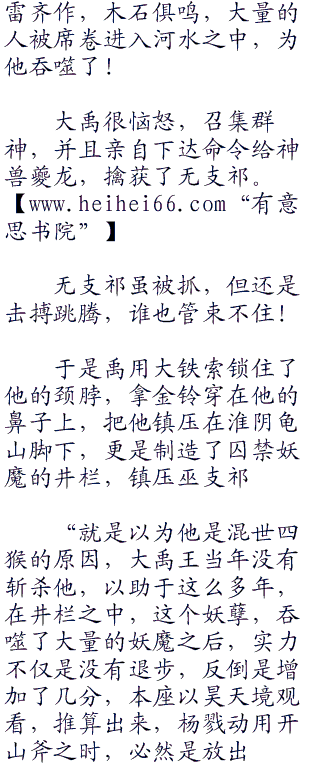 雷齐作，木石俱鸣，大量的
人被席卷进入河水之中，为
他吞噬了！
大禹很恼怒，召集群
神，并且亲自下达命令给神
兽夔龙，擒获了无支祁。
【www.heihei66.com“有意
思书院”】
无支祁虽被抓，但还是
击搏跳腾，谁也管束不住！
于是禹用大铁索锁住了
他的颈脖，拿金铃穿在他的
鼻子上，把他镇压在淮阴龟
山脚下，更是制造了囚禁妖
魔的井栏，镇压巫支祁
“就是以为他是混世四
猴的原因，大禹王当年没有
斩杀他，以助于这么多年，
在井栏之中，这个妖孽，吞
噬了大量的妖魔之后，实力
不仅是没有退步，反倒是增
加了几分，本座以昊天境观
看，推算出来，杨戬动用开
山斧之时，必然是放出